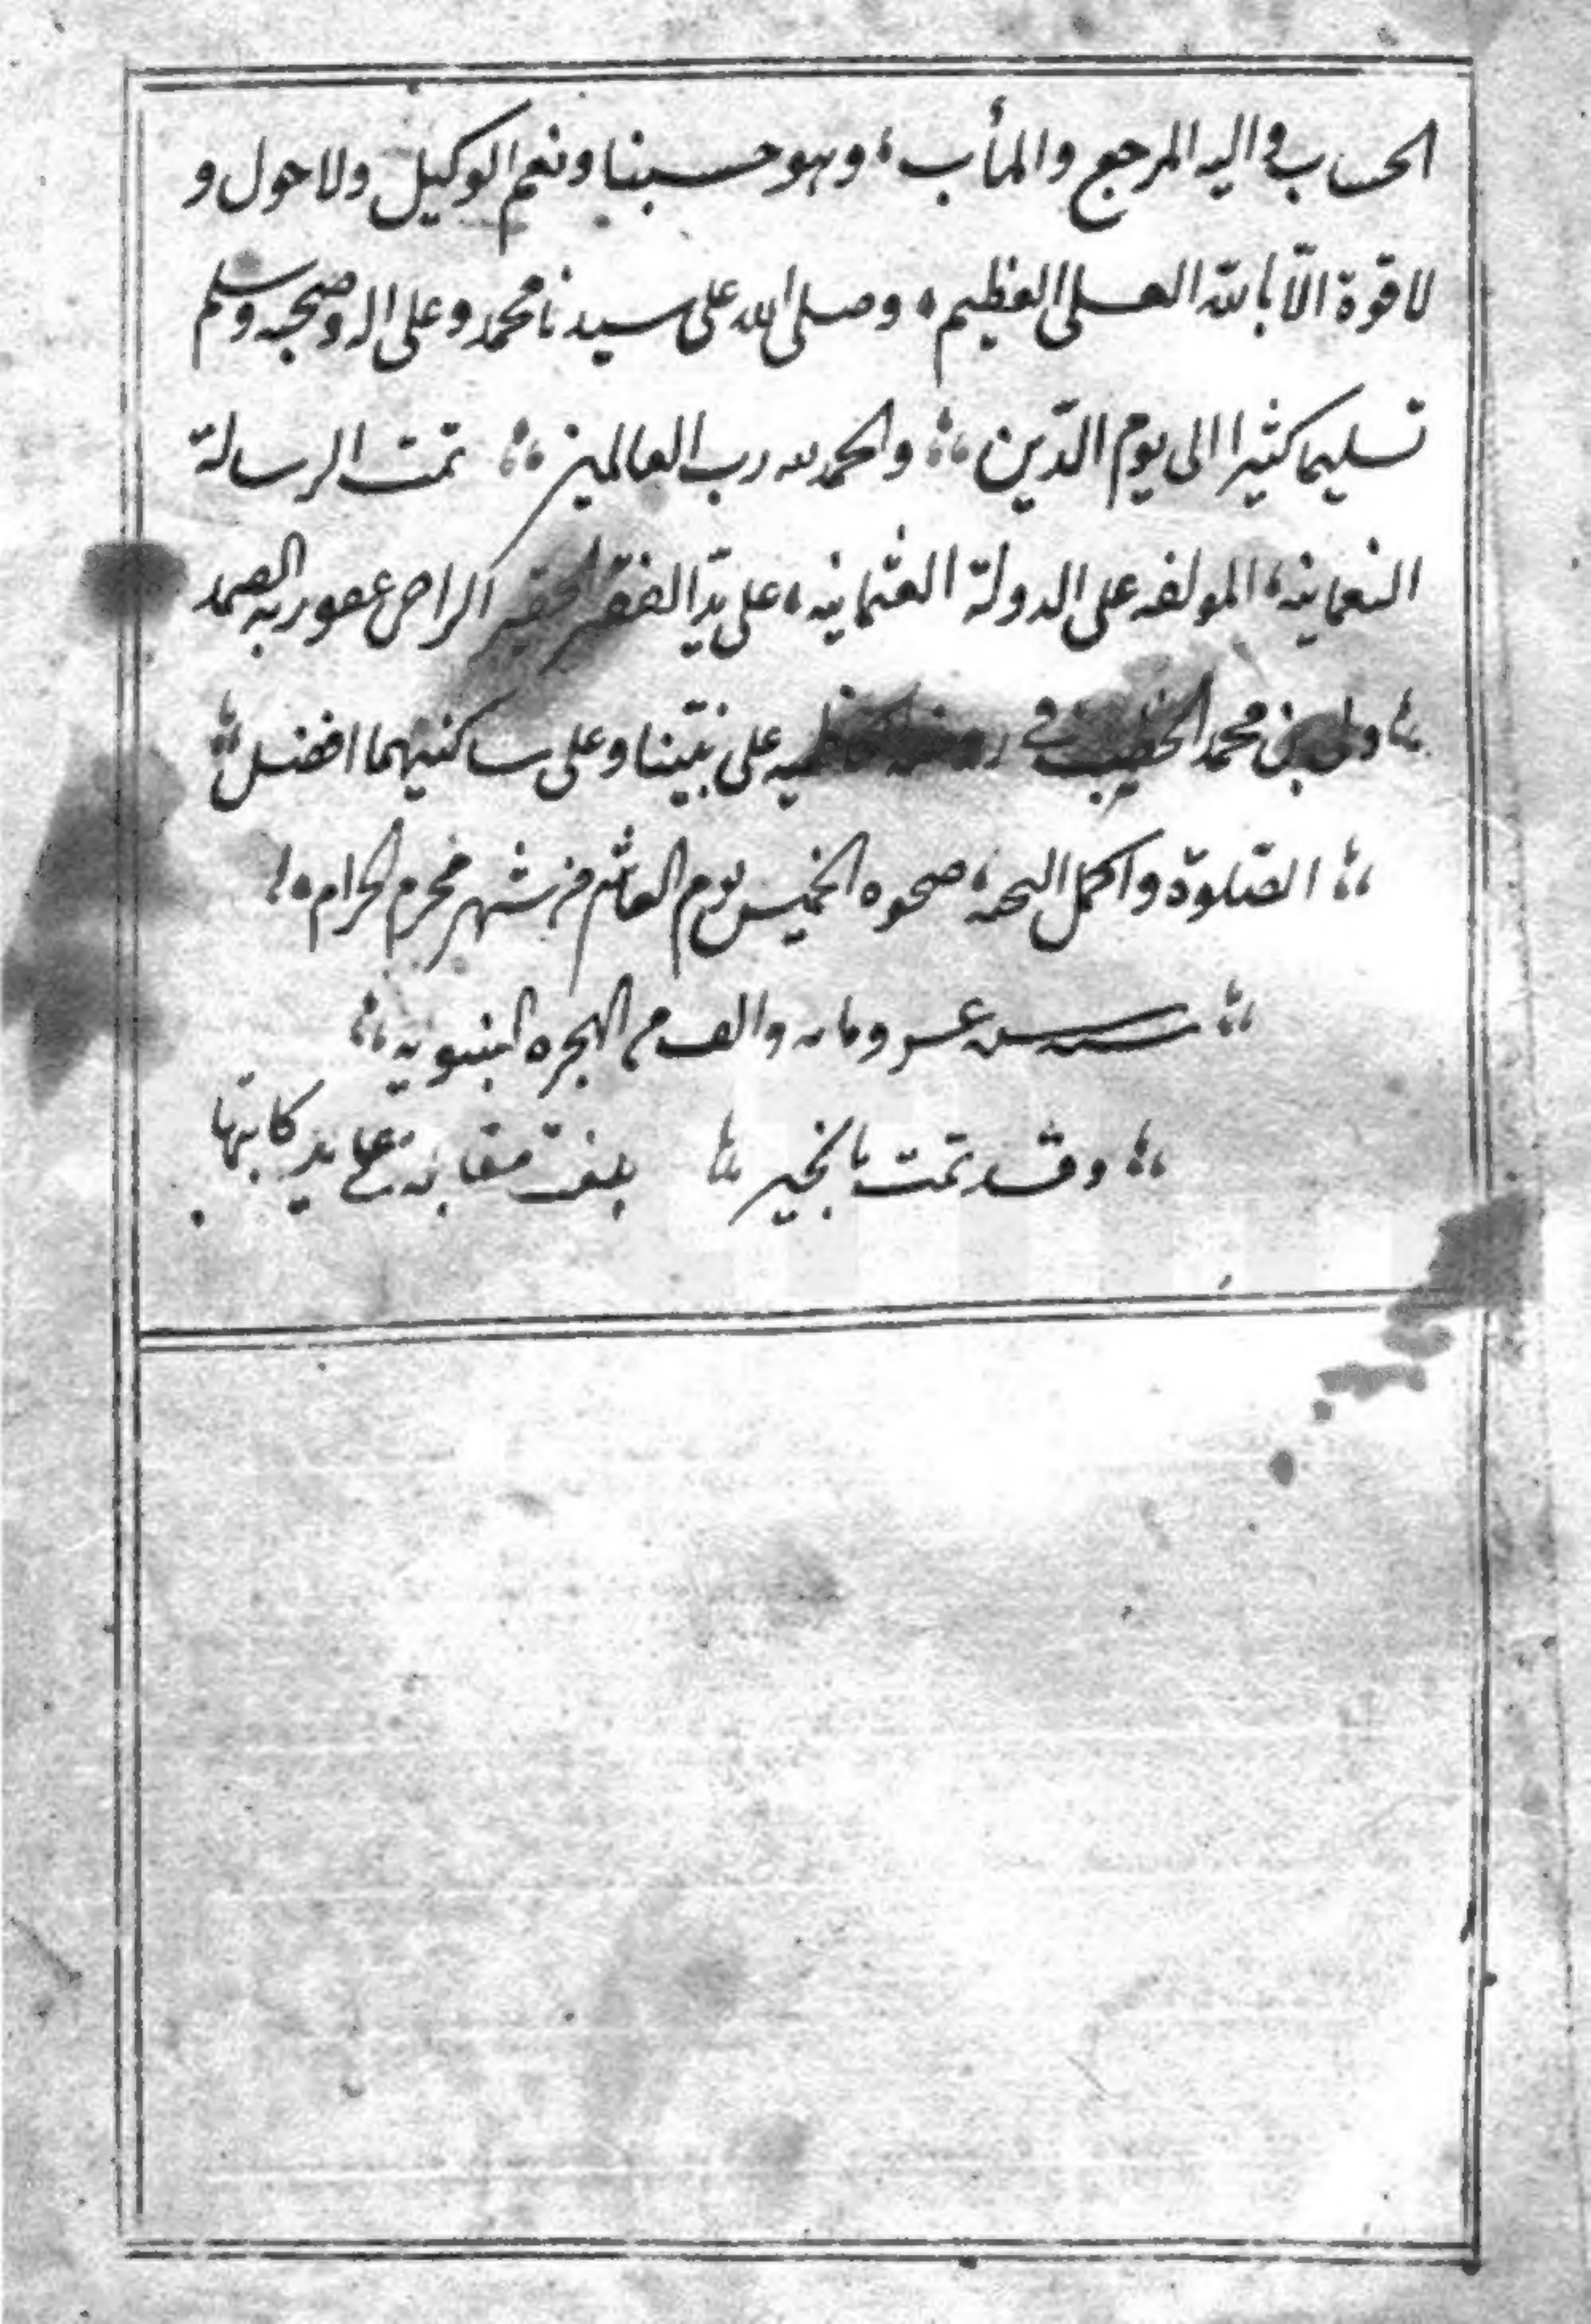 الحساب واليه المرجع والمأب، وهو حسبنا ونعم الوكيل ولا حول و
لا قوة الّا باللّه العلى العظيم، وصلى الله على سيدنا محمد وعلى اله وصحبه وسلم
تسليما كثيرا الى يوم الدّين، والحمد لله رب العالمين تمت الرسالة
النعمانيه، المولفه على الدولة العثمانيه، على يد الفقير الحقير الراجى عفو ربه الصمد
ولى بن محمد الخطيب فى على نبينا وعلى ساكنيهما افضل
الصّلوة واكمل التحيه، صحوه الخميس يوم العاشر من شهر محرم الحرام،
سنه عسر ومايه والف من الهجره النبويه
وقد تمت بالخير بلغت مقابلة على يد كاتبها